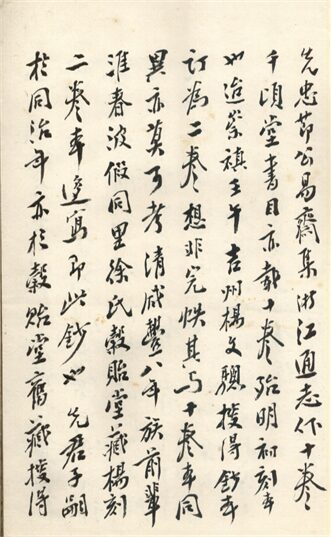 先忠節公易齋集浙江通志作十卷
千頃堂書目亦載十卷殆明初刻本
也迨崇禎壬午吉州楊文驄搜得鈔本
訂為二卷想非完帙其与十卷本同
異亦莫可考清咸豐八年族前輩
淮春波假同里徐氏穀貽堂藏楊刻
二卷本迻寫即此鈔也先君子嗣
於同治年亦於穀貽堂舊藏搜得